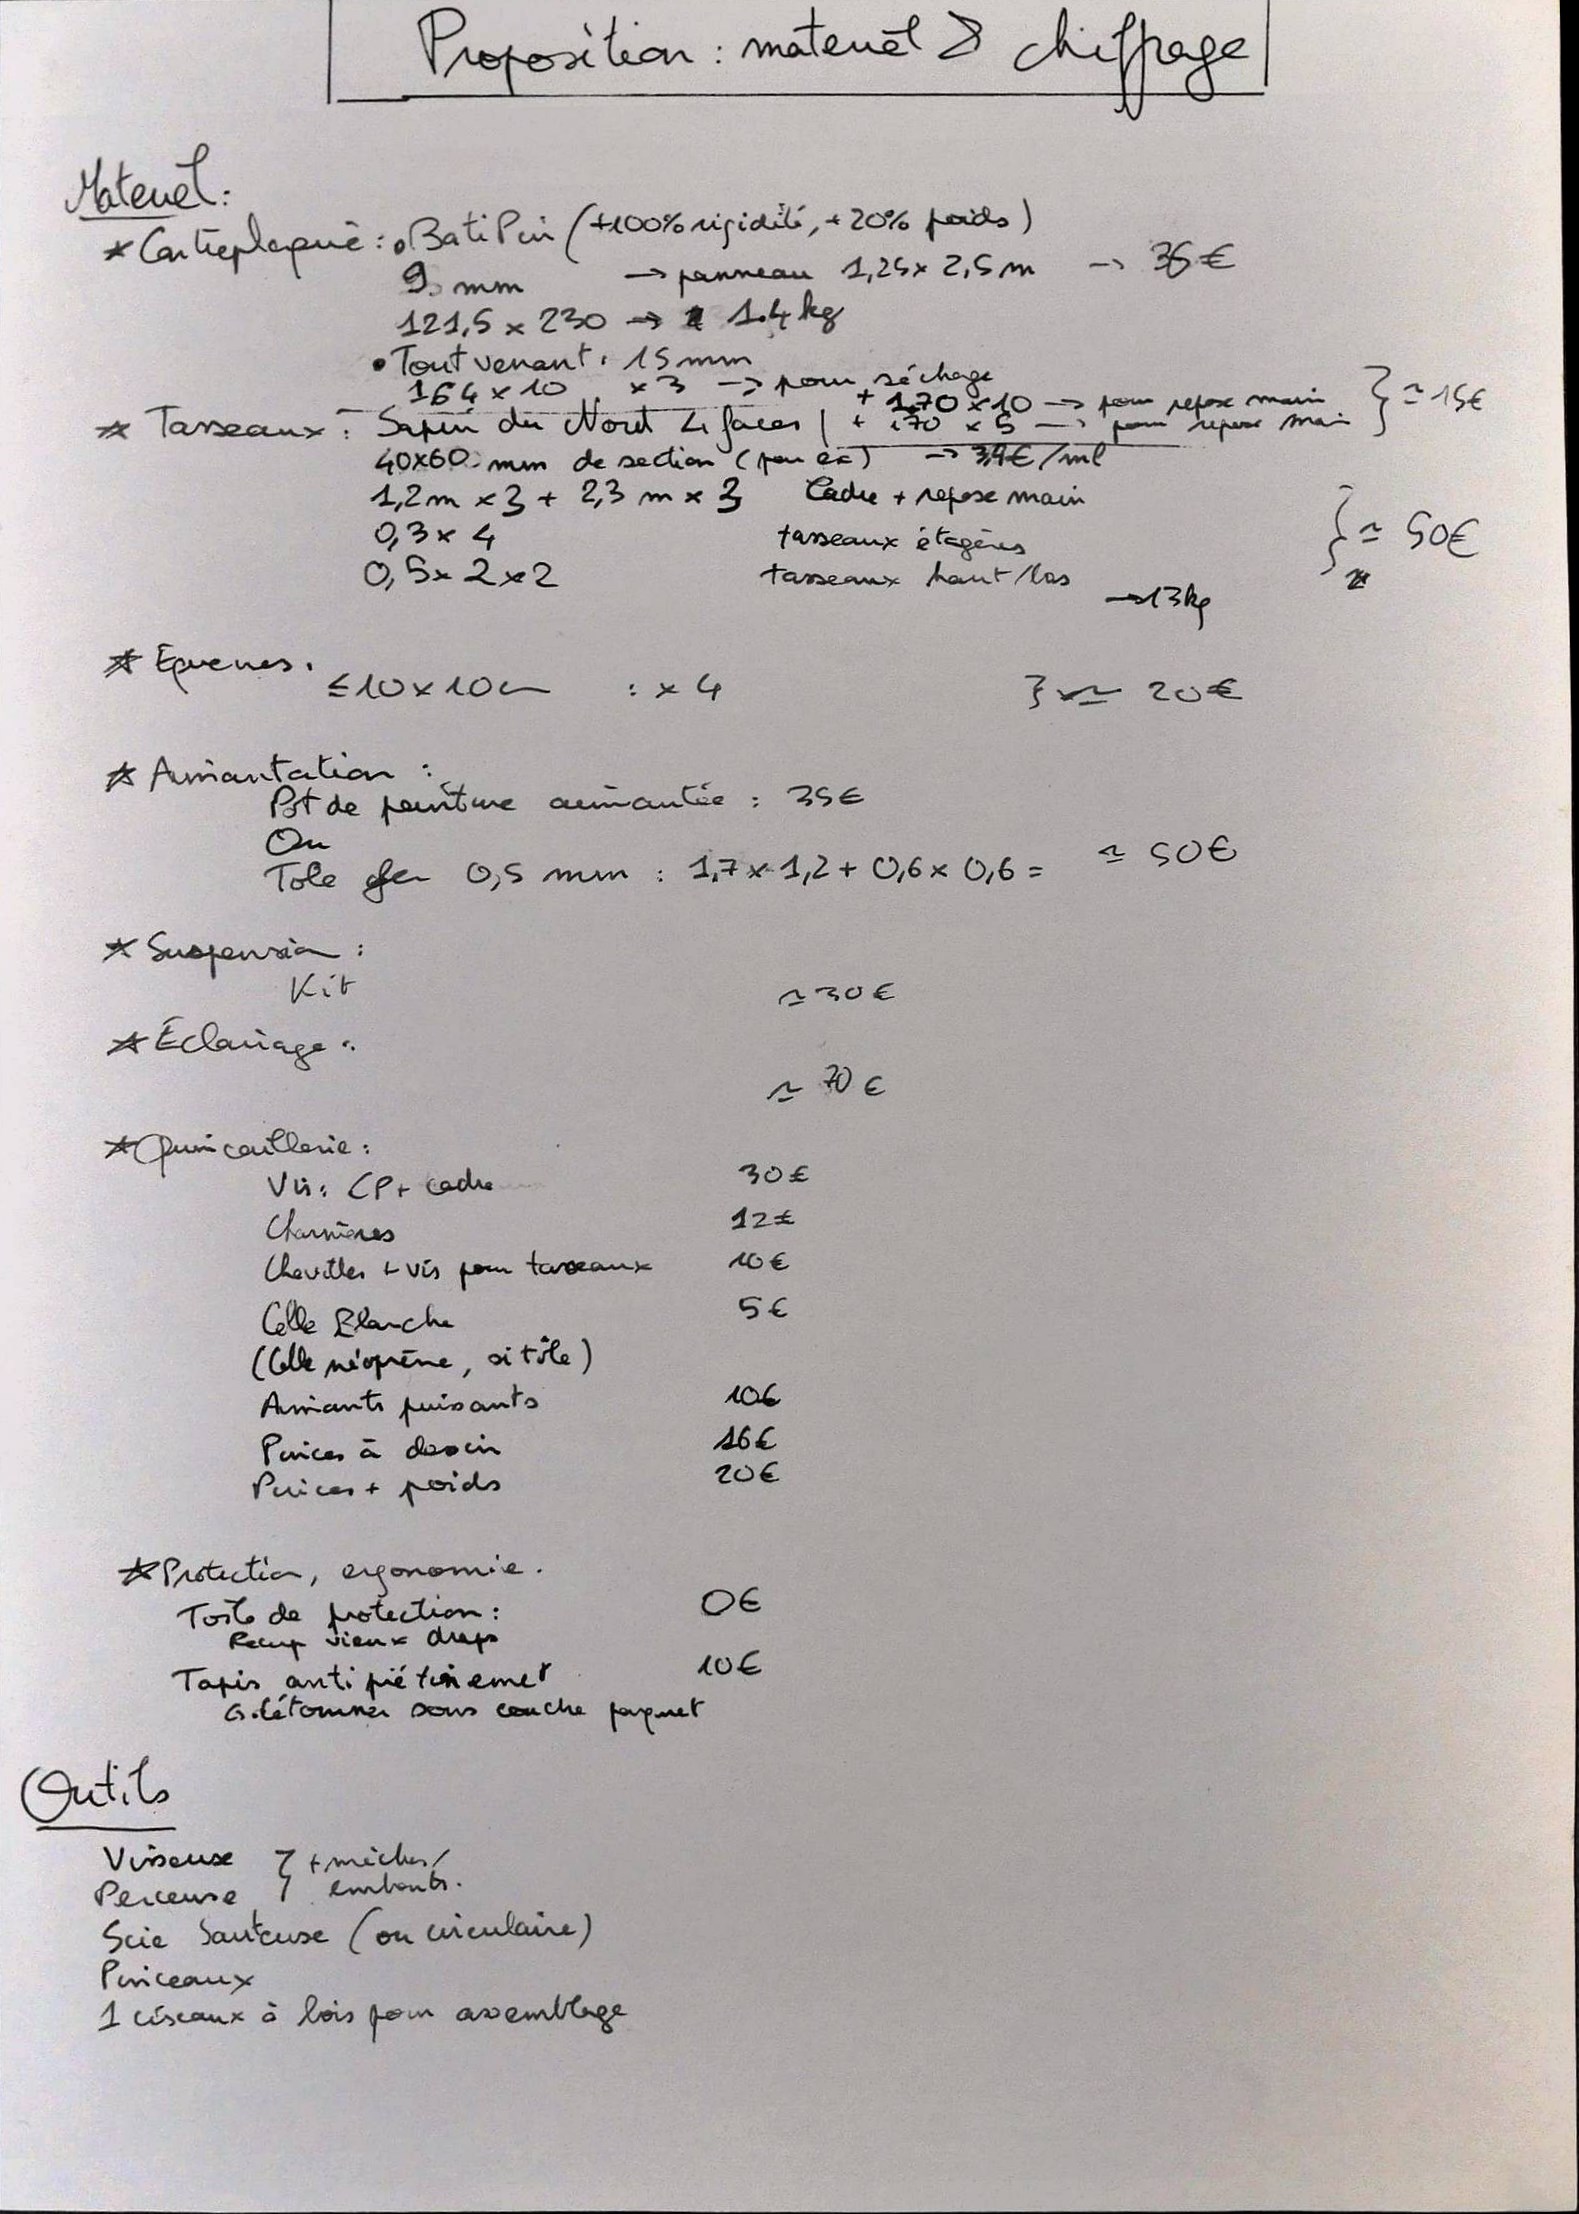 Proposition : matériel & chiffrage
Matériel :
* Contreplaqué : • BatiPin (+100% rigidité, +20% poids)
9 mm → panneau 1,25 x 2,5 m → 36€
121,5 x 230 → 14 kg
• Tout venant : 15 mm
164 x 10 x 3 → pour séchage
+ 170 x 10 → pour repose main } ≃ 15€
+ 170 x 5 → pour repose main
* Tasseaux : Sapin du Nord 4 faces
40x60 mm de section (par ex) → 3,4€/ml
1,2 m x 3 + 2,3 m x 3 Cadre + repose main
0,3 x 4 tasseaux étagères } ≃ 50€
0,5 x 2 x 2 tasseaux haut/bas
→ 13 kg
* Équerres :
≤ 10 x 10 cm : x 4 } ≃ 20€
* Aimantation :
Pot de peinture aimantée : 35€
Ou
Tôle fer 0,5 mm : 1,7 x 1,2 + 0,6 x 0,6 = ≃ 50€
* Suspension :
Kit ≃ 30€
* Éclairage :
≃ 70€
* Quincaillerie :
Vis : CP + cadre 30€
Charnières 12€
Chevilles + vis pour tasseaux 10€
Colle Blanche 5€
(Colle néoprène, si tôle)
Aimants puissants 10€
Pinces à dessin 16€
Pinces + poids 20€
* Protection, ergonomie.
Toile de protection : 0€
Recup vieux draps
Tapis anti piétinement 10€
sous couche parquet
Outils
Visseuse } + mèches/
Perceuse embouts.
Scie Sauteuse (ou circulaire)
Pinceaux
1 ciseaux à bois pour assemblage